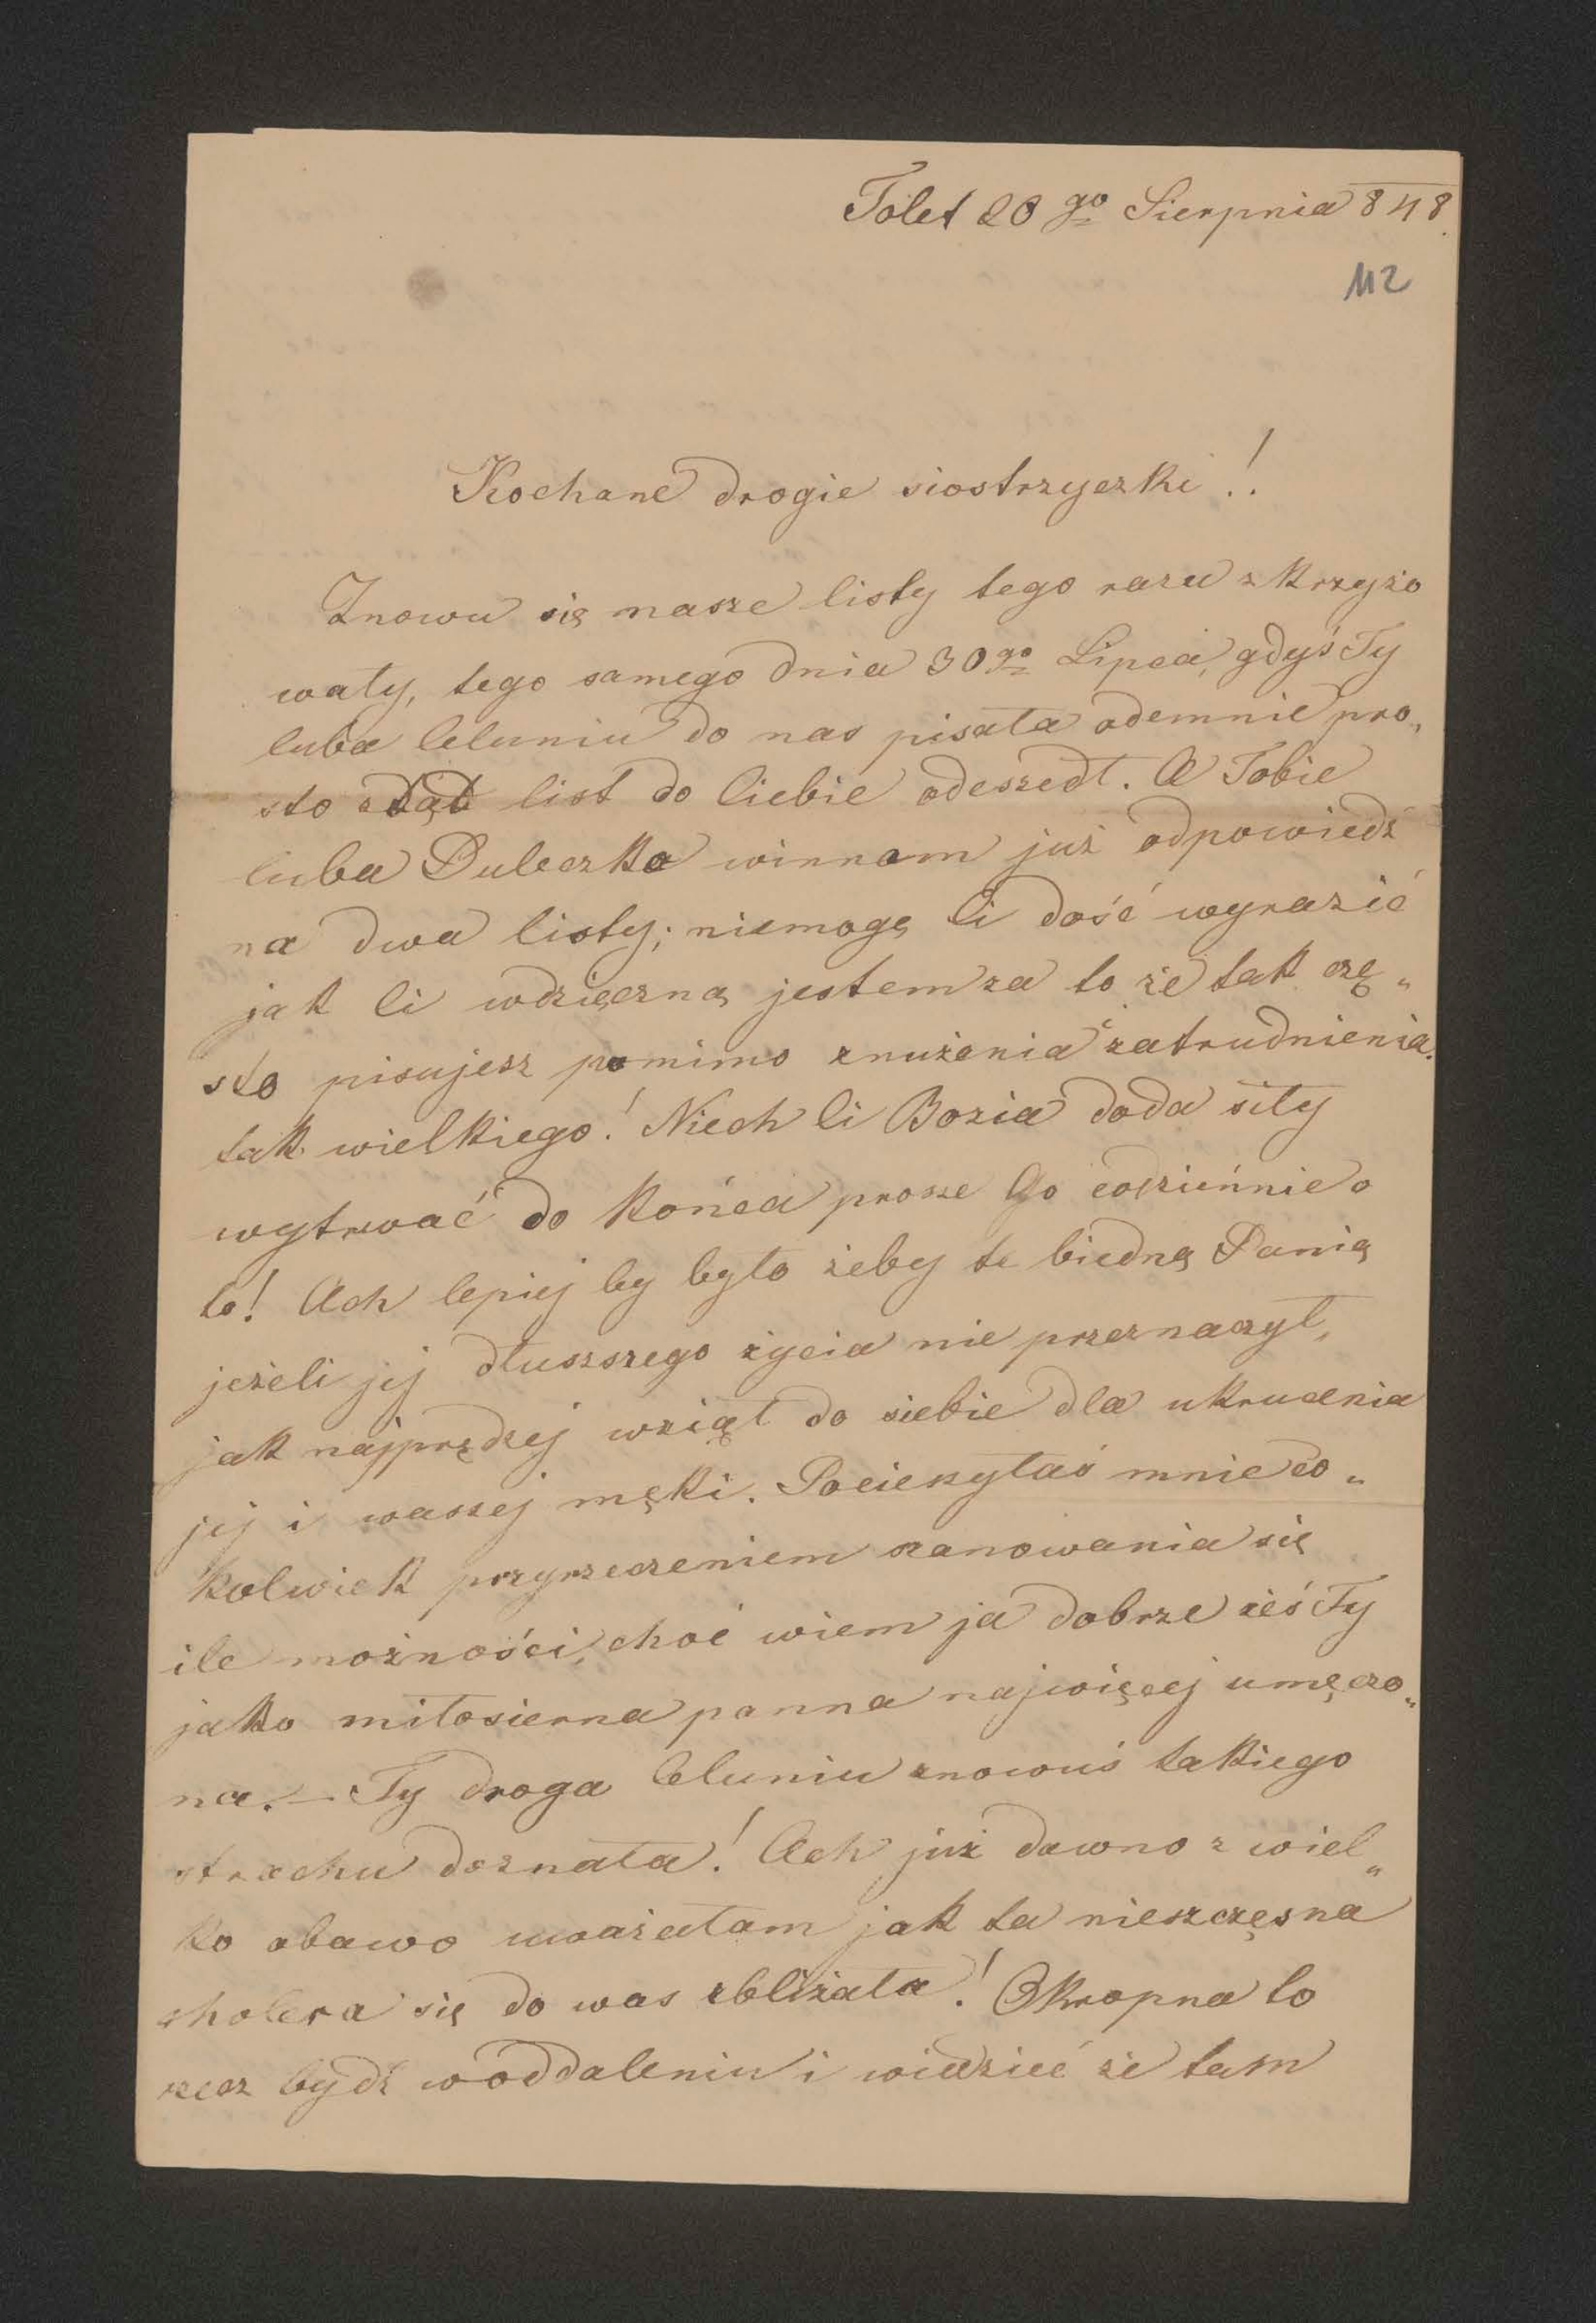 Tolet 20 go Sierpnia 848.
112
Kochane drogie siostrzyczki!!
Znowu się nasze listy tego razu skrzyżo
wały, tego samego dnia 30go Lipca, gdyś Ty
luba Celuniu do nas pisała odemnie pro„
sto stąd list do Ciebie odeszedł. A Tobie
luba Duleczko winnam już odpowiedź
na dwa listy; niemogę Ci dość wyrazić
jak Ci wdzięczną jestem za to że tak czę„
sto pisujesz pomimo znużenia i zatrudnienia
tak wielkiego! Niech Ci Bozia doda siły
wytrwać do końca prosze Go codziennie o
to! Ach lepiej by było żeby te biedną Panią
jeżeli jej dłuszszego życia nie przeznaczył,
jak najprędzej wziął do siebie dla ukrucenia
jej i waszej męki. Pocieszyłaś mnie co„
kolwiek przyrzeczeniem szanowania się
ile możności, choć wiem ja dobrze żeś Ty
jako miłosierna panna najwięcej umęczo„
na. — Ty droga Celuniu znowuś takiego
strachu doznała! Ach już dawno z wiel„
ko obawo uważałam jak ta nieszczęsna
cholera się do was zbliżała! Okropna to
rzecz bydź w oddaleniu i wiedzieć że tam